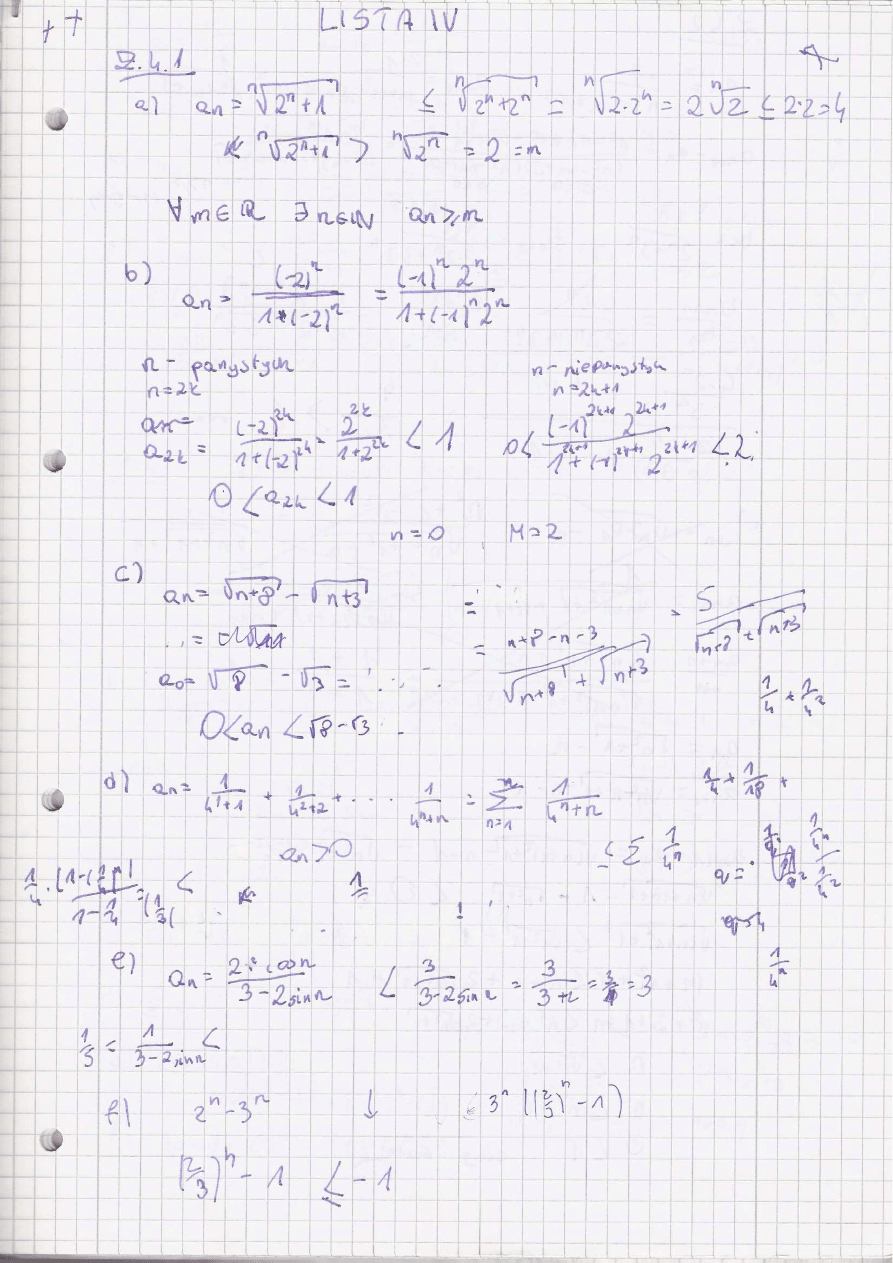 LISTA IV
Z.4.1
a) an = ⁿ√(2ⁿ+1) ≤ ⁿ√(2ⁿ+2ⁿ) = ⁿ√(2·2ⁿ) = 2 ⁿ√2 ≤ 2·2 = 4
ⁿ√(2ⁿ+1) > ⁿ√(2ⁿ) = 2 = m
∀ m∈ℝ ∃ n∈ℕ an ≥ m
b) an = (-2)ⁿ / (1+(-2)ⁿ) = (-1)ⁿ 2ⁿ / (1+(-1)ⁿ 2ⁿ)
n - parzystych
n=2k
n - nieparzystych
n=2k+1
a2k = (-2)^2k / (1+(-2)^2k) = 2^2k / (1+2^2k) < 1
0 < (-1)^(2k+1) 2^(2k+1) / (1+(-1)^(2k+1) 2^(2k+1)) < 2
0 < a2k < 1
n=0 M=2
c) an = √(n+8) - √(n+3) =
= (n+8-n-3) / (√(n+8) + √(n+3)) = 5 / (√(n+8) + √(n+3))
a0 = √8 - √3 =
0 < an < √8 - √3
1/4 + 1/4²
d) an = 1/(4¹+1) + 1/(4²+2) + .... 1/(4ⁿ+n) = Σ n=1 n 1/(4ⁿ+n)
1/4 + 1/18 +
an > 0
≤ Σ 1/4ⁿ
q =
1/4 · (1-(1/4)ⁿ) / (1-1/4) = 1/3 ( <
!
1/4ⁿ
e) an = (2+cos n) / (3-2sin n) < 3 / (3-2sin n) = 3/(3+2) = = 3
1/5 = 1 / (3-2sin n) <
f) 2ⁿ - 3ⁿ ↓ 3ⁿ ((2/3)ⁿ - 1)
(2/3)ⁿ - 1 ≤ -1